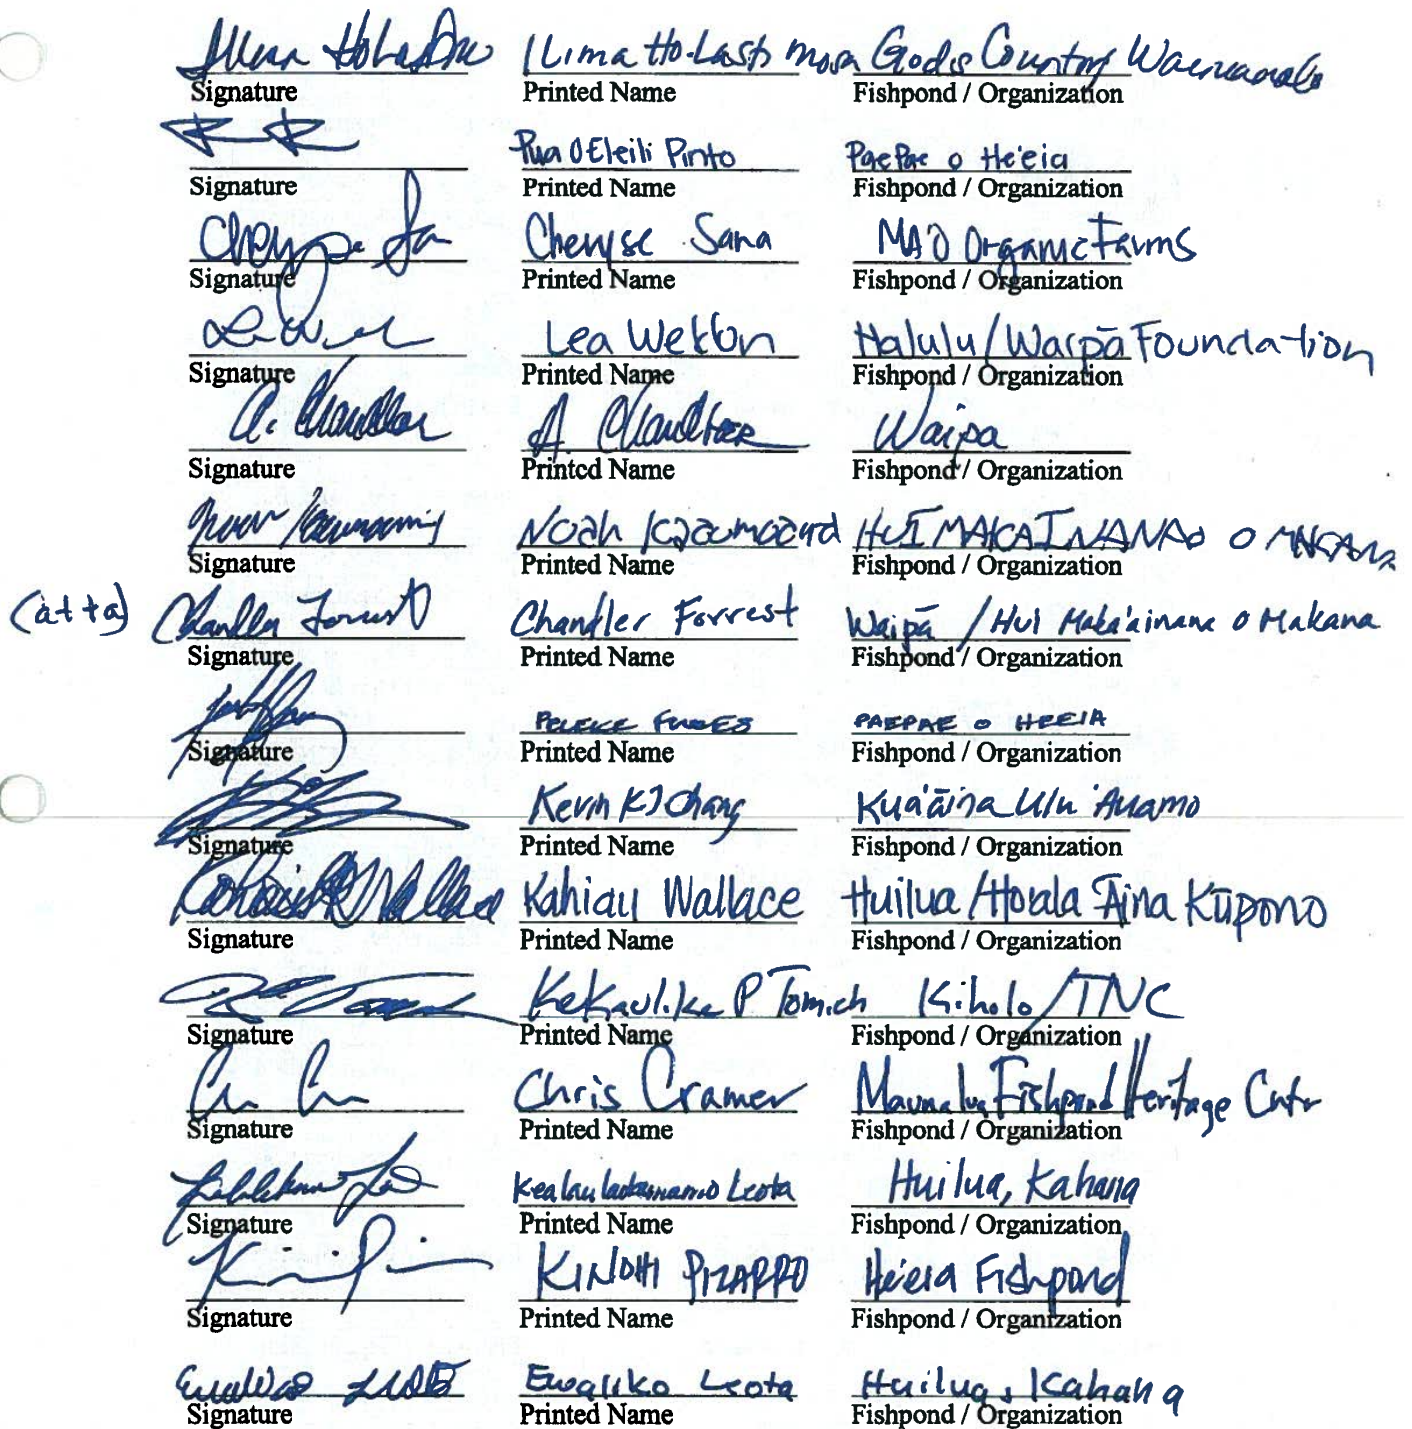 Ilima Ho-Lastimosa God's Country Waimanalo
Signature Printed Name Fishpond / Organization
Pua O Eleili Pinto PaePae o He'eia
Signature Printed Name Fishpond / Organization
Cheryse Sana MA'O Organic Farms
Signature Printed Name Fishpond / Organization
Lea Halulu/Waipā Foundation
Signature Printed Name Fishpond / Organization
A. Chandler A. Chandler Waipa
Signature Printed Name Fishpond / Organization
Noah HUI MAKAINANA O MAKANA
Signature Printed Name Fishpond / Organization
Chandler Forrest Chandler Forrest Waipā / Hui Maka'ainana o Makana
Signature Printed Name Fishpond / Organization
PELEKE PAEPAE o HEEIA
Signature Printed Name Fishpond / Organization
Kevin KJ Chang Kua'āina Ulu 'Auamo
Signature Printed Name Fishpond / Organization
Kahiau Wallace Kahiau Wallace Huilua/Hoala Āina Kūpono
Signature Printed Name Fishpond / Organization
Kekaulike P Tomich Kiholo/TNC
Signature Printed Name Fishpond / Organization
Chris Cramer Maunalua Fishpond Heritage Cntr
Signature Printed Name Fishpond / Organization
Leota Huilua, Kahana
Signature Printed Name Fishpond / Organization
KINOHI PIZARRO He'eia Fishpond
Signature Printed Name Fishpond / Organization
Ewaliko Leota Huilua, Kahana
Signature Printed Name Fishpond / Organization